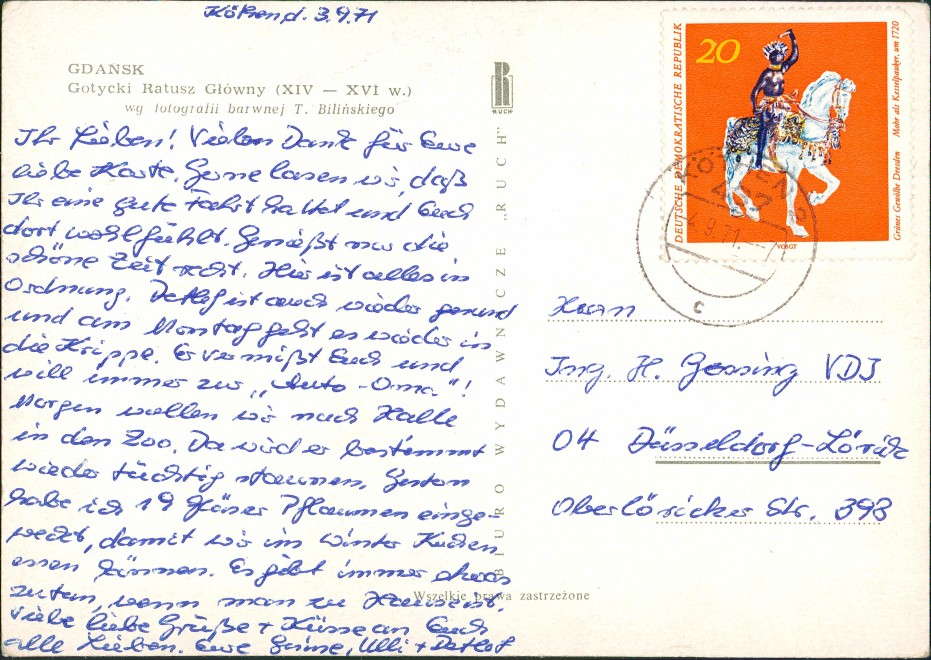 Köthen d. 3.9.71
GDANSK
Gotycki Ratusz Główny (XIV — XVI w.)
wg fotografii barwnej T. Bilińskiego
Ihr Lieben! Vielen Dank für Eure
liebe Karte. Gerne lasen wir, daß
Ihr eine gute Fahrt hattet und Euch
dort wohlfühlt. Genießt nur die
schöne Zeit recht. Hier ist alles in
Ordnung. Detlef ist auch wieder gesund
und am Montag geht es wieder in
die Krippe. Er vermißt Euch und
will immer zur „Auto-Oma"!
Morgen wollen wir nach Halle
in den Zoo. Da wird er bestimmt
wieder tüchtig staunen. Gestern
habe ich 19 Gläser Pflaumen einge-
weckt, damit wir im Winter Kuchen
essen können. Es gibt immer etwas
zu tun, wenn man zu Hause ist.
Viele liebe Grüße + Küsse an Euch
alle Lieben. Eure Ulli + Detlef
RUCH
BIURO WYDAWNICZE „RUCH"
Wszelkie prawa zastrzeżone
DEUTSCHE DEMOKRATISCHE REPUBLIK
20
Grünes Gewölbe Dresden Mohr als Kesselpauker, um 1720
VOIGT
KÖTHEN 2
437
4.9.71.--7
c
Herrn
Ing. H. Gensing VDI
04 Düsseldorf-Lörick
Oberlöricker Str. 393